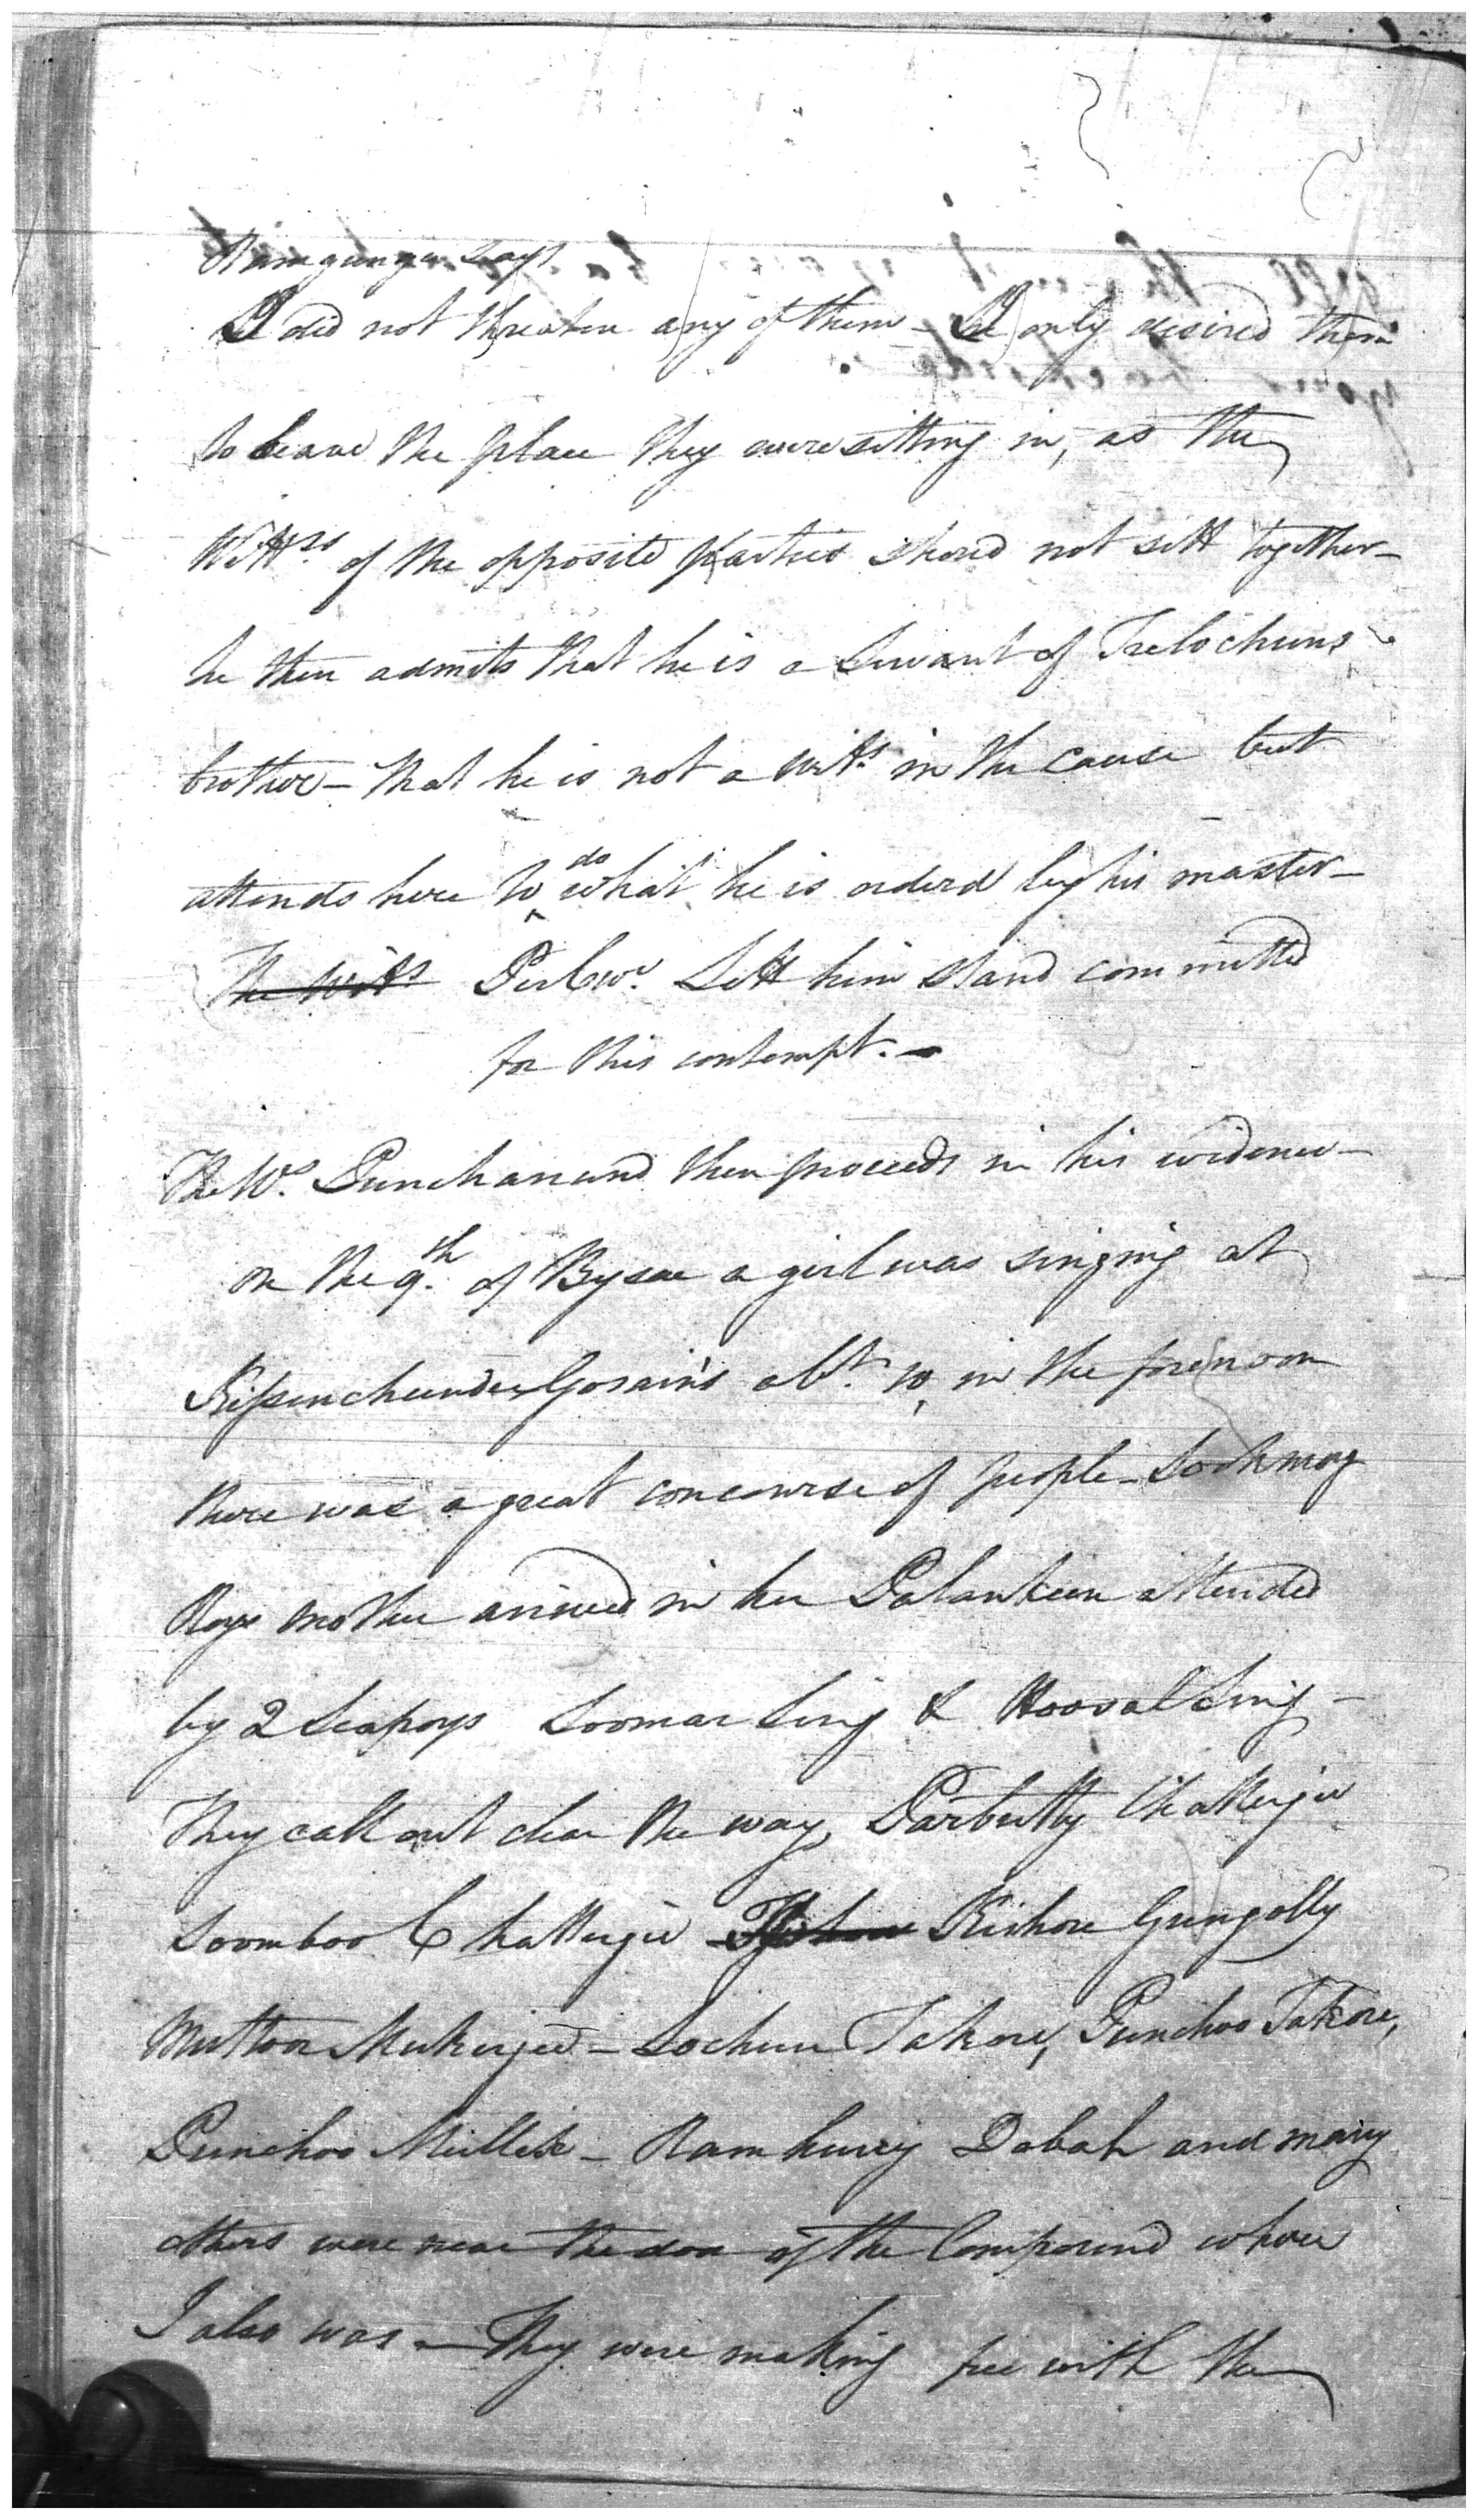 Ramgunga Says
I did not threaten any of them - I only desired them
to leave the place they were sitting in, as the
Wittss. of the opposite parties should not sitt together -
he then admits that he is a Servant of Trelochuns
brother - that he is not a witts. in the cause but
attends here to do what he is orderd by his master -
The Witts Per Cur. Lett him stand committed
for this contempt. -
The Ws. Punchanund then proceeds in his evidence -
on the 9th. of Bysac a girl was singing at
Kissenchunder Gosain's abt. 10 in the forenoon
there was a great concourse of people - Sookmoy
Roys mother arrived in her Palankeen attended
by 2 Seapoys Soomar Sing & Koosal Sing -
They call out clear the way, Parbutty Chatterjee
Soomboo Chatterjee Kishore Gungolly
Muttoor Mukerjee - Lochun Takore, Punchoo Takore,
Punchoo Mullick - Ramhurry Dabah and many
others were near the door of the Compound where
I also was - They were making free with the